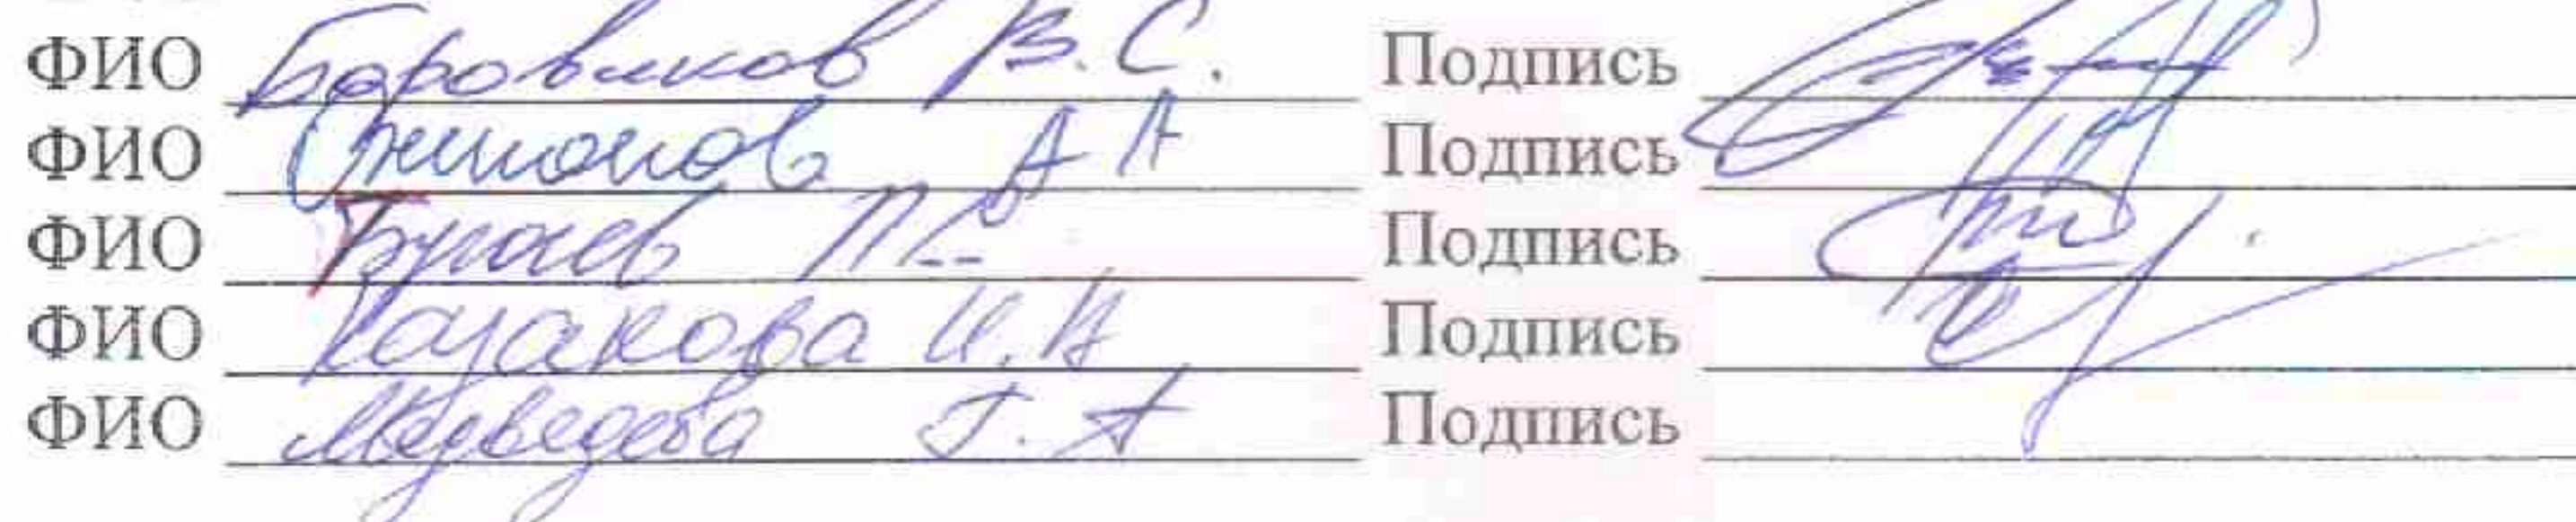 ФИО Боровиков В.С. Подпись
ФИО А А Подпись
ФИО Подпись
ФИО Казакова И.А Подпись
ФИО Медведева Г.А Подпись